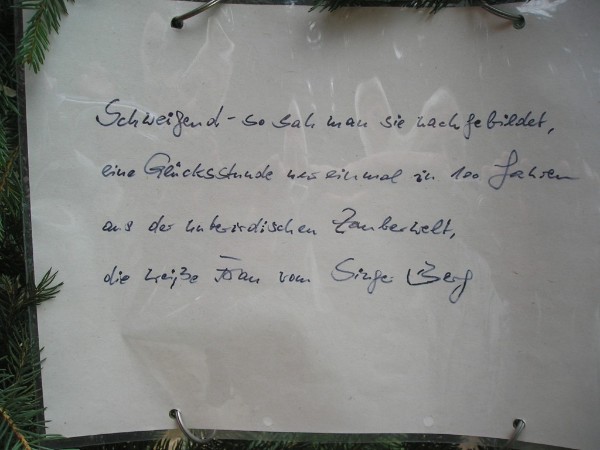 Schweigend - so sah man sie nachgebildet,
eine Glücksstunde nur einmal in 100 Jahren
aus der unterirdischen Zauberwelt,
die weiße Frau vom Singer Berg